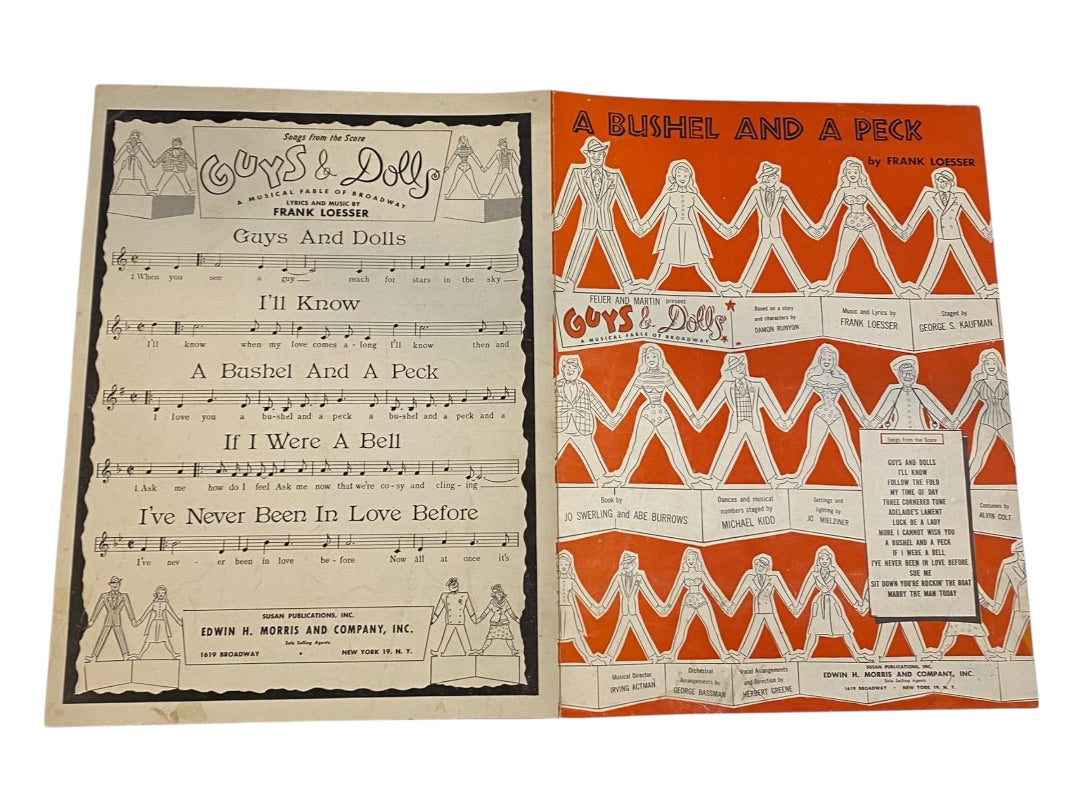 Songs from the Score
GUYS & Dolls
A MUSICAL FABLE OF BROADWAY
LYRICS AND MUSIC BY
FRANK LOESSER
Guys And Dolls
1. When you see a guy reach for stars in the sky
I'll Know
I'll know when my love comes a - long I'll know then and
A Bushel And A Peck
I love you a bu-shel and a peck a bu-shel and a peck and a
If I Were A Bell
1. Ask me how do I feel Ask me now that we're co-sy and cling-ing
I've Never Been In Love Before
I've nev - er been in love be - fore Now all at once it's
SUSAN PUBLICATIONS, INC.
EDWIN H. MORRIS AND COMPANY, INC.
Sole Selling Agents
1619 BROADWAY • NEW YORK 19, N. Y.
A BUSHEL AND A PECK
by FRANK LOESSER
FEUER AND MARTIN present
GUYS & Dolls
A MUSICAL FABLE OF BROADWAY
Based on a story
and characters by
DAMON RUNYON
Music and Lyrics by
FRANK LOESSER
Staged by
GEORGE S. KAUFMAN
Book by
JO SWERLING and ABE BURROWS
Dances and musical
numbers staged by
MICHAEL KIDD
Settings and
lighting by
JO MIELZINER
Costumes by
ALVIN COLT
Songs from the Score
GUYS AND DOLLS
I'LL KNOW
FOLLOW THE FOLD
MY TIME OF DAY
THREE CORNERED TUNE
ADELAIDE'S LAMENT
LUCK BE A LADY
MORE I CANNOT WISH YOU
A BUSHEL AND A PECK
IF I WERE A BELL
I'VE NEVER BEEN IN LOVE BEFORE
SUE ME
SIT DOWN YOU'RE ROCKIN' THE BOAT
MARRY THE MAN TODAY
Musical Director
IRVING ACTMAN
Orchestral
Arrangements by
GEORGE BASSMAN
Vocal Arrangements
and Direction by
HERBERT GREENE
SUSAN PUBLICATIONS, INC.
EDWIN H. MORRIS AND COMPANY, INC.
Sole Selling Agents
1619 BROADWAY • NEW YORK 19, N. Y.